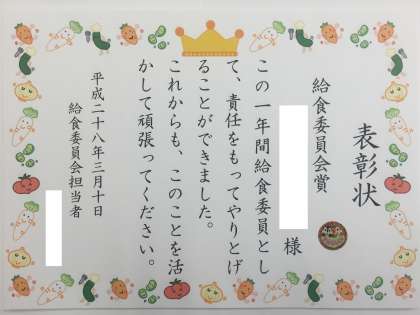 表彰状
給食委員会賞
様
この一年間給食委員とし
て、責任をもってやりとげ
ることができました。
これからも、このことを活
かして頑張ってください。
平成二十八年三月十日
給食委員会担当者